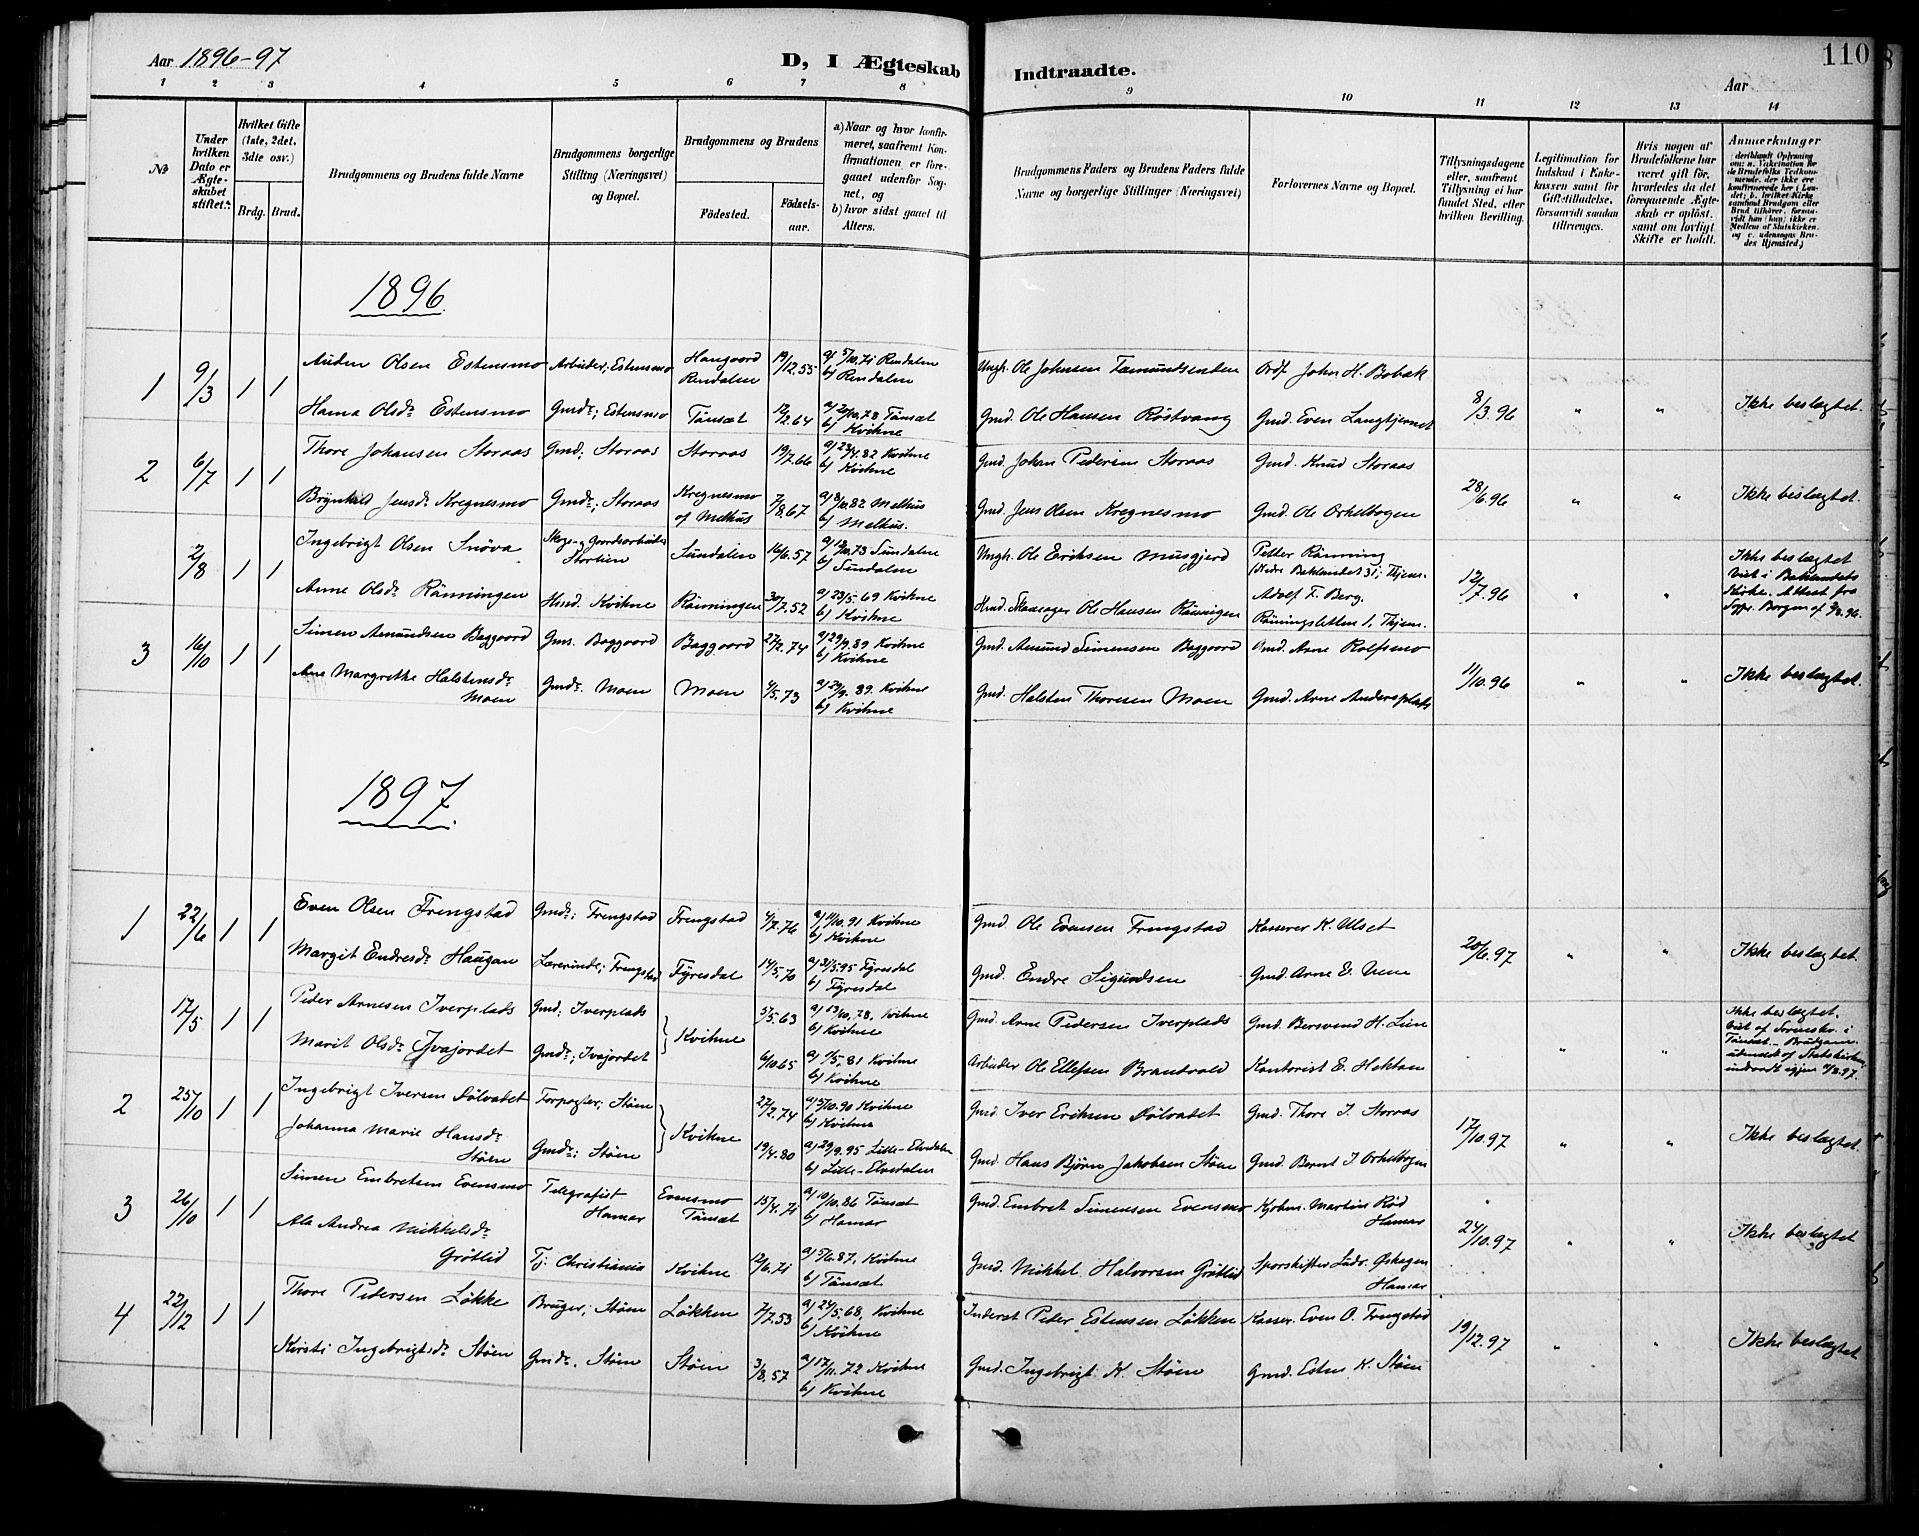 Aar 1896-97
D, I Ægteskab Indtraadte.
110
Aar
1 2 3 4 5 6 7 8 9 10 11 12 13 14
No
Under hvilken Dato er Ægteskabet stiftet.
Hvilket Gifte (1ste, 2det, 3die osv.)
Brdg. Brud.
Brudgommens og Brudens fulde Navne
Brudgommens borgerlige Stilling (Næringsvei) og Bopæl.
Brudgommens og Brudens
Födested. Födselsaar.
a) Naar og hvor konfirmeret, saafremt Konfirmationen er foregaaet udenfor Sognet, og
b) hvor sidst gaaet til Alters.
Brudgommens Faders og Brudens Faders fulde Navne og borgerlige Stillinger (Næringsvei)
Forlovernes Navne og Bopæl.
Tillysningsdagene eller, saafremt Tillysning ei har fundet Sted, efter hvilken Bevilling.
Legitimation for Indskud i Enkekassen samt for Giftetilladelse, forsaavidt saadan tiltrænges.
Hvis nogen af Brudefolkene har været gift før, hvorledes da det foregaaende Ægteskab er oplöst, samt om lovligt Skifte er holdt.
Anmærkninger
1896.
1 9/3 1 1 Auden Olsen Estensmo Arbeider; Estensmo Haugaard Rendalen 19/12.55 a) 5/10.71 Rendalen b) Rendalen Ungk. Ole Johnsen Fæmundsenden Ordf. John H. Bobak 8/3.96 " " Ikke beslægtet.
Hanna Olsdr. Estensmo Gmdr.; Estensmo Tönsæt 12/2.64 a) 20/10.78 Tönsæt b) Kvikne Gmd. Ole Hansen Röstvang Gmd. Even Langtjernet
2 6/7 1 1 Thore Johansen Storaas Gmd; Storaas Storaas 19/7.66 a) 23/4.82 Kvikne b) Kvikne Gmd. Johan Pedersen Storaas Gmd. Knud Storaas 28/6.96 " " Ikke beslægtet.
Brynhild Jensdr. Kregnesmo Gmdr.; Storaas Kregnesmo af Melhus 7/8.67 a) 8/10.82 Melhus b) Melhus. Gmd. Jens Olsen Kregnesmo Gmd. Ole Orkelbogen
2/8 1 1 Ingebrigt Olsen Snöva Skog- og Gaardsarbeider Storlien Sundalen 16/6.57 a) 12/10.73 Sundalen b) Sundalen Ungk. Ole Eriksen Musgjerd Petter Rönning
(Nedre Baklandet 31; Thjem.
12/7.96 " " Ikke beslægtet Viet i Baklandets Kirke. Attest fra Sogpr. Borgen af 3/8.96.
Anne Olsdr. Rönningen Husd. Kvikne Rönningen 30/7.52 a) 23/5.69 Kvikne b) Kvikne Husd. Ole Hansen Rönnigen Adolf F. Berg.
Rönningsletten 1, Thjem.
3 16/10 1 1 Simen Amundsen Baggaard Gms. Baggaard Baggaard 27/2.74 a) 29/9.89 Kvikne b) Kvikne Gmd. Amund Simensen Baggaard Gmd. Arne Rolfsmo 11/10.96 " " Ikke beslægtet.
Ane Margrethe Halstensdr. Moen Gmdr. Moen Moen 4/5.73 a) 29/9.89. Kvikne b) Kvikne Gmd. Halsten Thoresen Moen Gmd. Arne Andersplads
1897.
1 22/6 1 1 Even Olsen Frengstad Gmds; Frengstad Frengstad 4/7.76 a) 11/10.91 Kvikne b) Kvikne Gmd. Ole Evensen Frengstad Kasserer K. Ulset 20/6.97 " " Ikke beslægtet.
Margit Endresdr. Haugan Lærerinde; Frengstad Fyresdal 14/5.70 a) 31/5.95 Fyresdal b) Fyresdal Gmd. Endre Sigurdsen Gmd. Arne E. Vene
17/5 1 1 Peder Arnesen Iverplads Gmd; Iverplads Kvikne 5/5.63 a) 13/10.78, Kvikne b) Kvikne Gmd. Arne Pedersen Iverplads Gmd. Bersvend H. Lien " " Ikke beslægtet. Viet af Sorenskr. i Tönset. Brudgom. udmeldt af Statskirken
Marit Olsdr. Ivajordet Gmdr.; Ivajordet 6/10.65 a) 1/5.81 Kvikne b) Kvikne Arbeider Ole Ellefsen Brandvold Kontorist E. Hektoen
2 25/10 1 1 Ingebrigt Iversen Dölvadet Forpagter; Stöen Kvikne 27/2.74 a) 5/10.90 Kvikne b) Kvikne Gmd. Iver Eriksen Dölvadet Gmd. Thore J. Storaas 17/10.97 " " Ikke beslægtet.
Johanna Marie Hansdr. Stöen Gmdr.; Stöen 19/4.80 a) 29/9.95 Lille-Elvedalen b) Lille-Elvedalen Gmd. Hans Björn Jakobsen Stöen Gmd. Bernt J. Orkelbogen
3 26/10 1 1 Simen Embretsen Evensmo Telegrafist Hamar Evensmo Tönsæt 15/4.71 a) 10/10.86 Tönsæt b) Hamar Gmd. Embret Simensen Evensmo Kjöbm. Martin Röd Hamar 24/10.97 " " Ikke beslægtet
Ala Andrea Mikkelsdr. Grötlid Tj. Christiania Kvikne 12/6.71 a) 5/6.87, Kvikne b) Tönsæt Gmd. Mikkel Halvorsen Grötlid Sporskifter Ludv. Öskogen Hamar
4 22/12 1 1 Thore Pedersen Lökke Bruger; Stöen Lökken 7/7.53 a) 24/5.68, Kvikne b) Kvikne Inderst Peder Estensen Lökken Kasser. Even O. Frengstad 19/12.97 " " Ikke beslægtet
Kirsti Ingebrigtsdr. Stöen Gmdr. Stöen Stöen 3/8.57 a) 17/11.72 Kvikne b) Kvikne Gmd. Ingebrigt K. Stöen Gmd. Esten K. Stöen